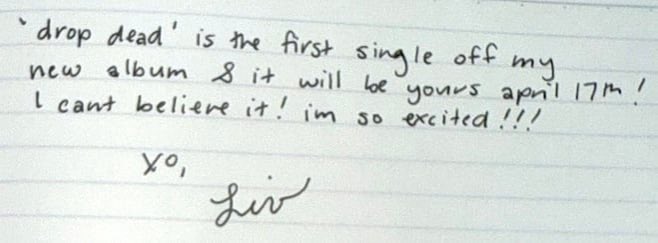 'drop dead' is the first single off my
new album & it will be yours april 17th!
I cant believe it! im so excited!!!
xo,
Liv